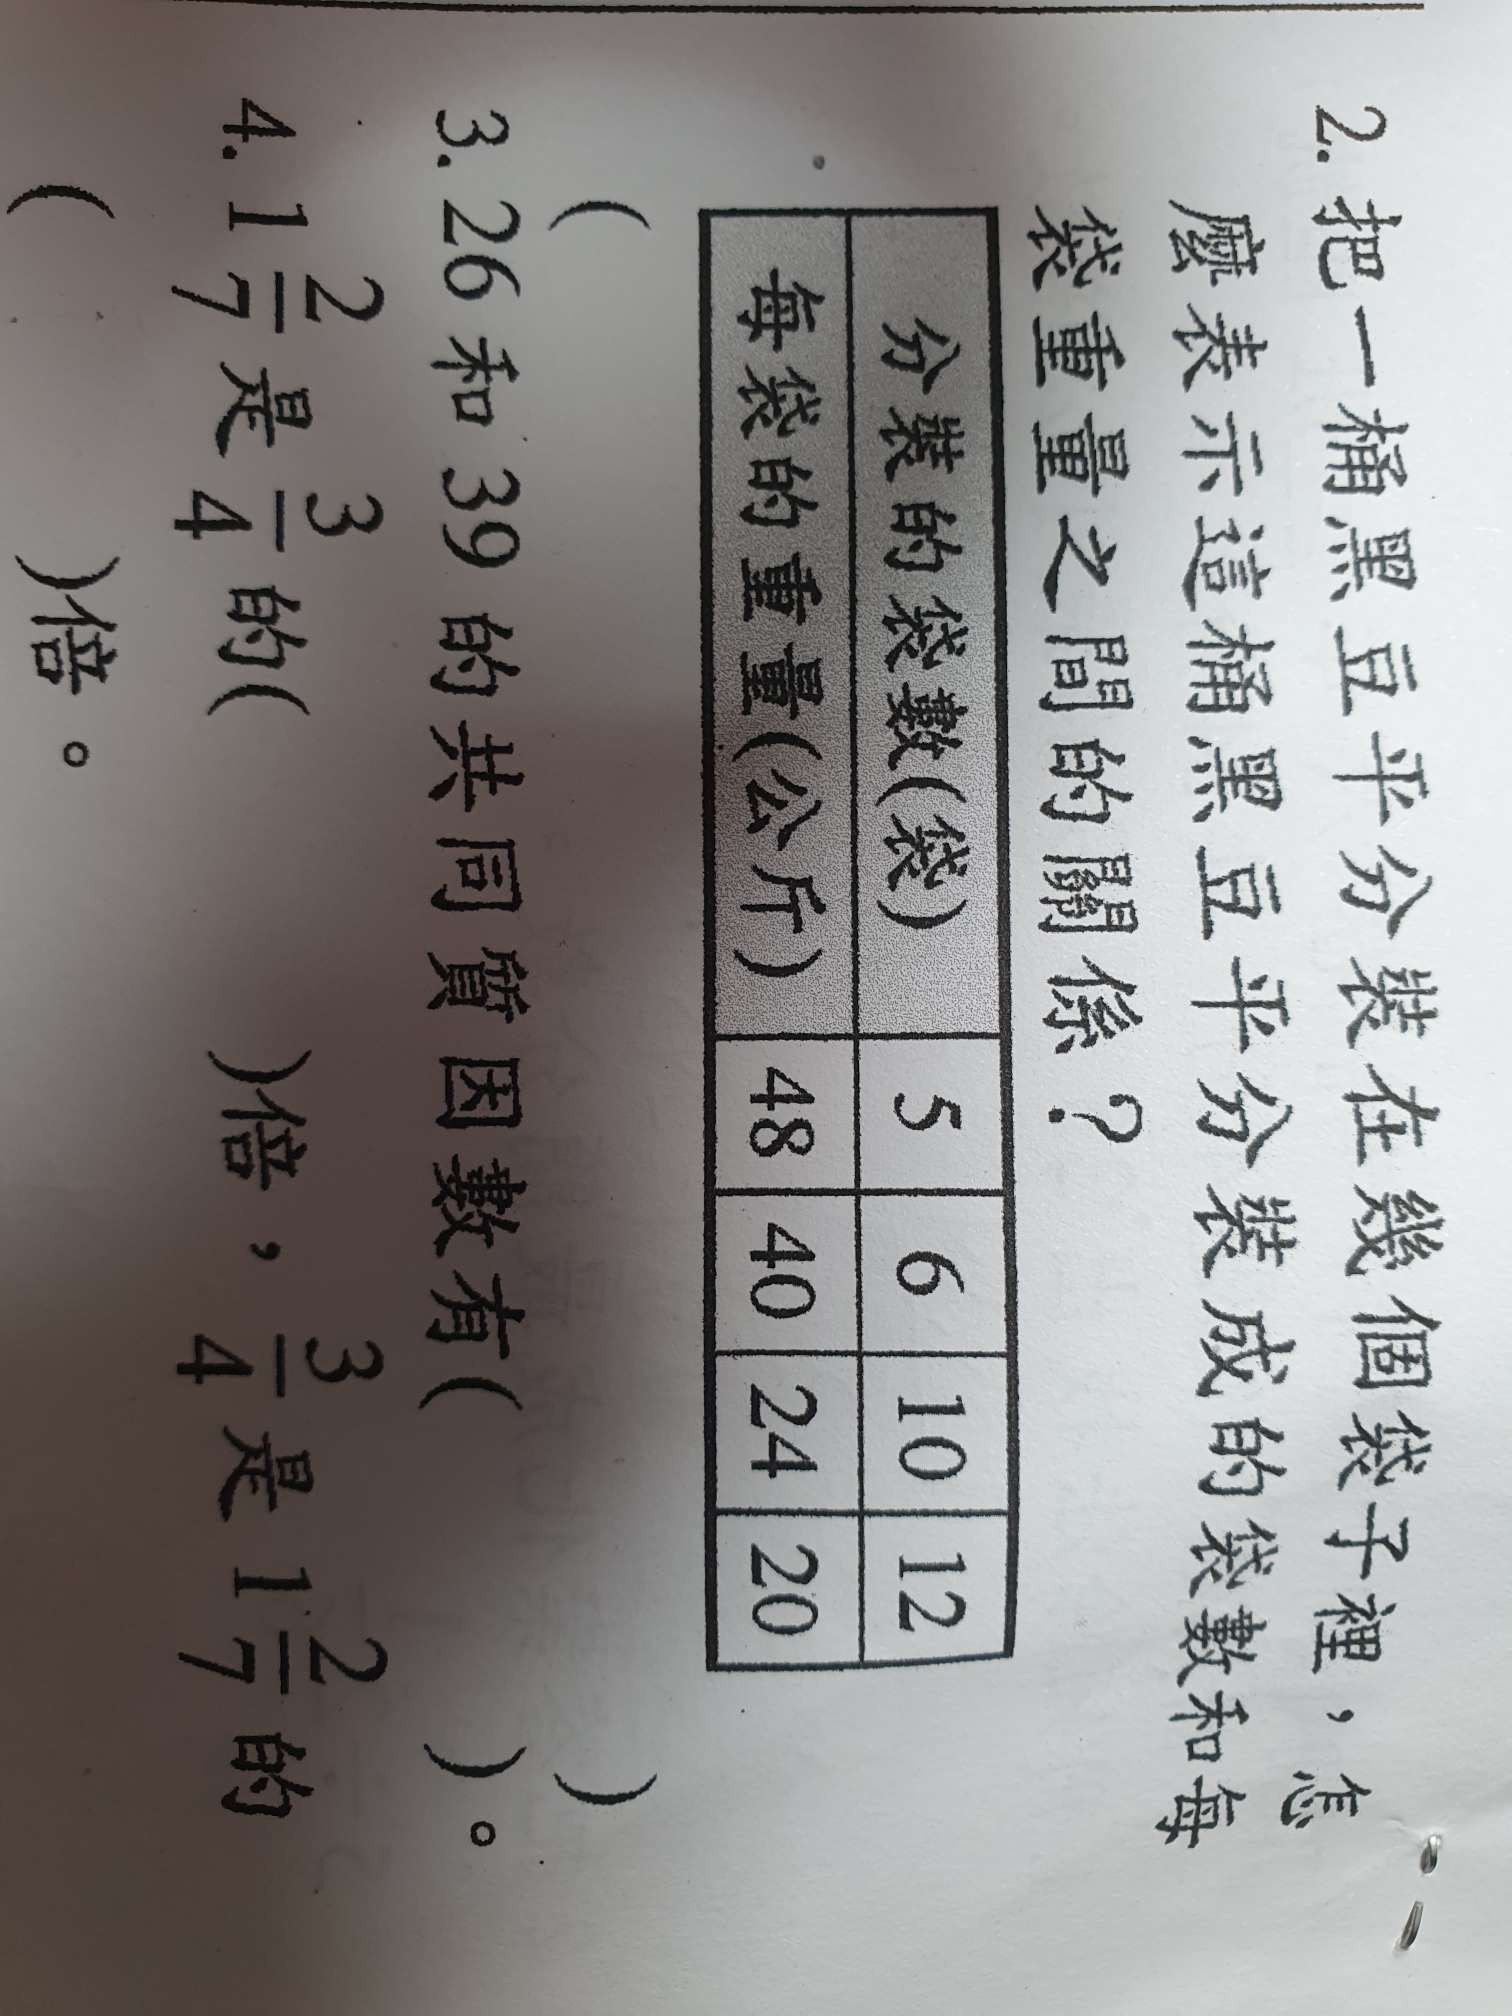 2. 把一桶黑豆平分裝在幾個袋子裡，怎
麼表示這桶黑豆平分裝成的袋數和每
袋重量之間的關係？
分裝的袋數(袋) 5 6 10 12
每袋的重量(公斤) 48 40 24 20
( )
3. 26 和 39 的共同質因數有( )。
4. 1 2/7 是 3/4 的( )倍，3/4 是 1 2/7 的
( )倍。